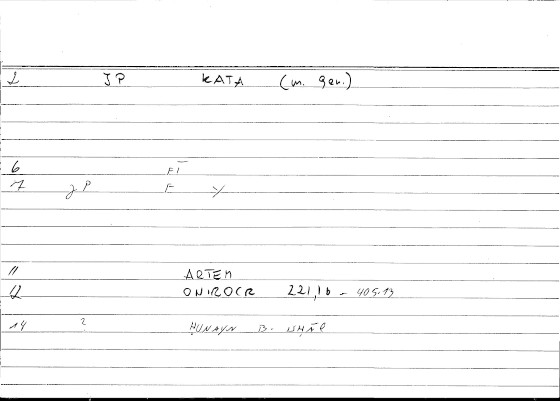 2 JP KATA (m. gen.)
6 FĪ
7 JP F Y
11 ARTEM
12 ONIROCR 221,16 - 405.13
14 2 ḤUNAYN B. ISḤĀQ